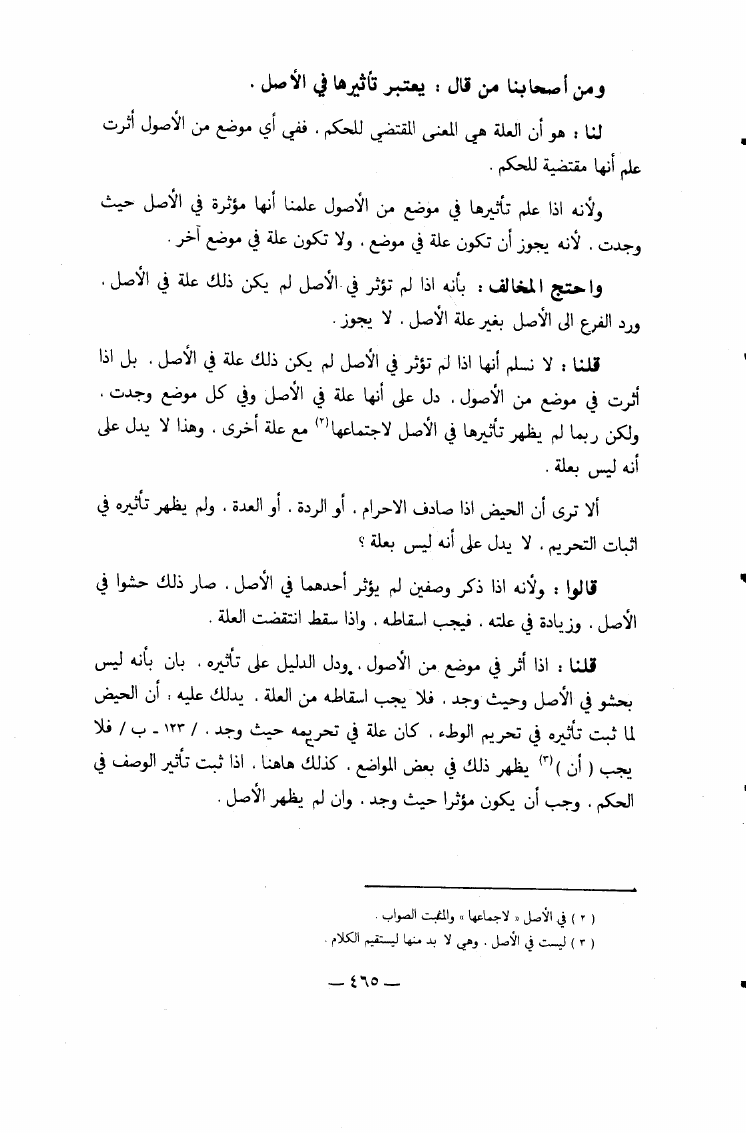 ومن أصحابنا من قال : يعتبر تأثيرها في الأصل .
لنا : هو أن العلة هي المعنى المقتضي للحكم . ففي أي موضع من الأصول أثرت
علم أنها مقتضية للحكم .
ولأنه اذا علم تأثيرها في موضع من الأصول علمنا أنها مؤثرة في الأصل حيث
وجدت . لأنه يجوز أن تكون علة في موضع . ولا تكون علة في موضع آخر .
واحتج المخالف : بأنه اذا لم تؤثر في الأصل لم يكن ذلك علة في الأصل .
ورد الفرع الى الأصل بغير علة الأصل . لا يجوز .
قلنا : لا نسلم أنها اذا لم تؤثر في الأصل لم يكن ذلك علة في الأصل . بل اذا
أثرت في موضع من الأصول . دل على أنها علة في الأصل وفي كل موضع وجدت .
ولكن ربما لم يظهر تأثيرها في الأصل لاجتماعها(٢) مع علة أخرى . وهذا لا يدل على
أنه ليس بعلة .
ألا ترى أن الحيض اذا صادف الاحرام . أو الردة . أو العدة . ولم يظهر تأثيره في
اثبات التحريم . لا يدل على أنه ليس بعلة ؟
قالوا : ولأنه اذا ذكر وصفين لم يؤثر أحدهما في الأصل . صار ذلك حشوا في
الأصل . وزيادة في علته . فيجب اسقاطه . واذا سقط انتقضت العلة .
قلنا : اذا أثر في موضع من الأصول . ودل الدليل على تأثيره . بان بأنه ليس
بحشو في الأصل وحيث وجد . فلا يجب اسقاطه من العلة . يدلك عليه : أن الحيض
لما ثبت تأثيره في تحريم الوطء . كان علة في تحريمه حيث وجد . / ١٢٣ - ب / فلا
يجب ( أن )(٣) يظهر ذلك في بعض المواضع . كذلك هاهنا . اذا ثبت تأثير الوصف في
الحكم . وجب أن يكون مؤثرا حيث وجد . وان لم يظهر الأصل .
( ٢ ) في الأصل « لاجماعها » والمثبت الصواب .
( ٣ ) ليست في الأصل . وهي لا بد منها ليستقيم الكلام .
— ٤٦٥ —